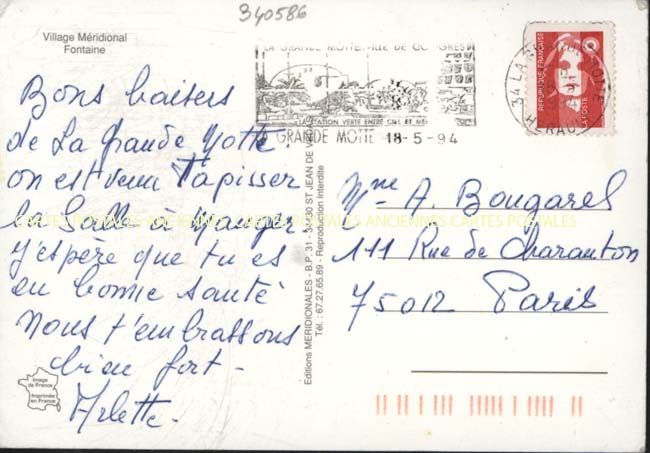 340586
Village Méridional
Fontaine
LA GRANDE MOTTE VILLE DE CONGRES
LA STATION VERTE ENTRE CIEL ET MER
GRANDE MOTTE 18-5-94
34 LA GRANDE MOTTE
HERAULT
REPUBLIQUE FRANÇAISE
LA POSTE
Bons baisers
de La Grande Motte.
on est venu Tapisser
la Salle à Manger.
j'espère que tu es
en bonne santé
Nous t'embrassons
bien fort-
Arlette.
Mme A. Bougarel
111 Rue de Charanton
75012 Paris
CARTES POSTALES ANCIENNES CARTES POSTALES ANCIENNES CARTES POSTALES
Editions MERIDIONALES - B.P. 31 - 34430 ST JEAN DE V
Tél.: 67.27.65.89 - Reproduction Interdite
Image
de France
Imprimée
en France